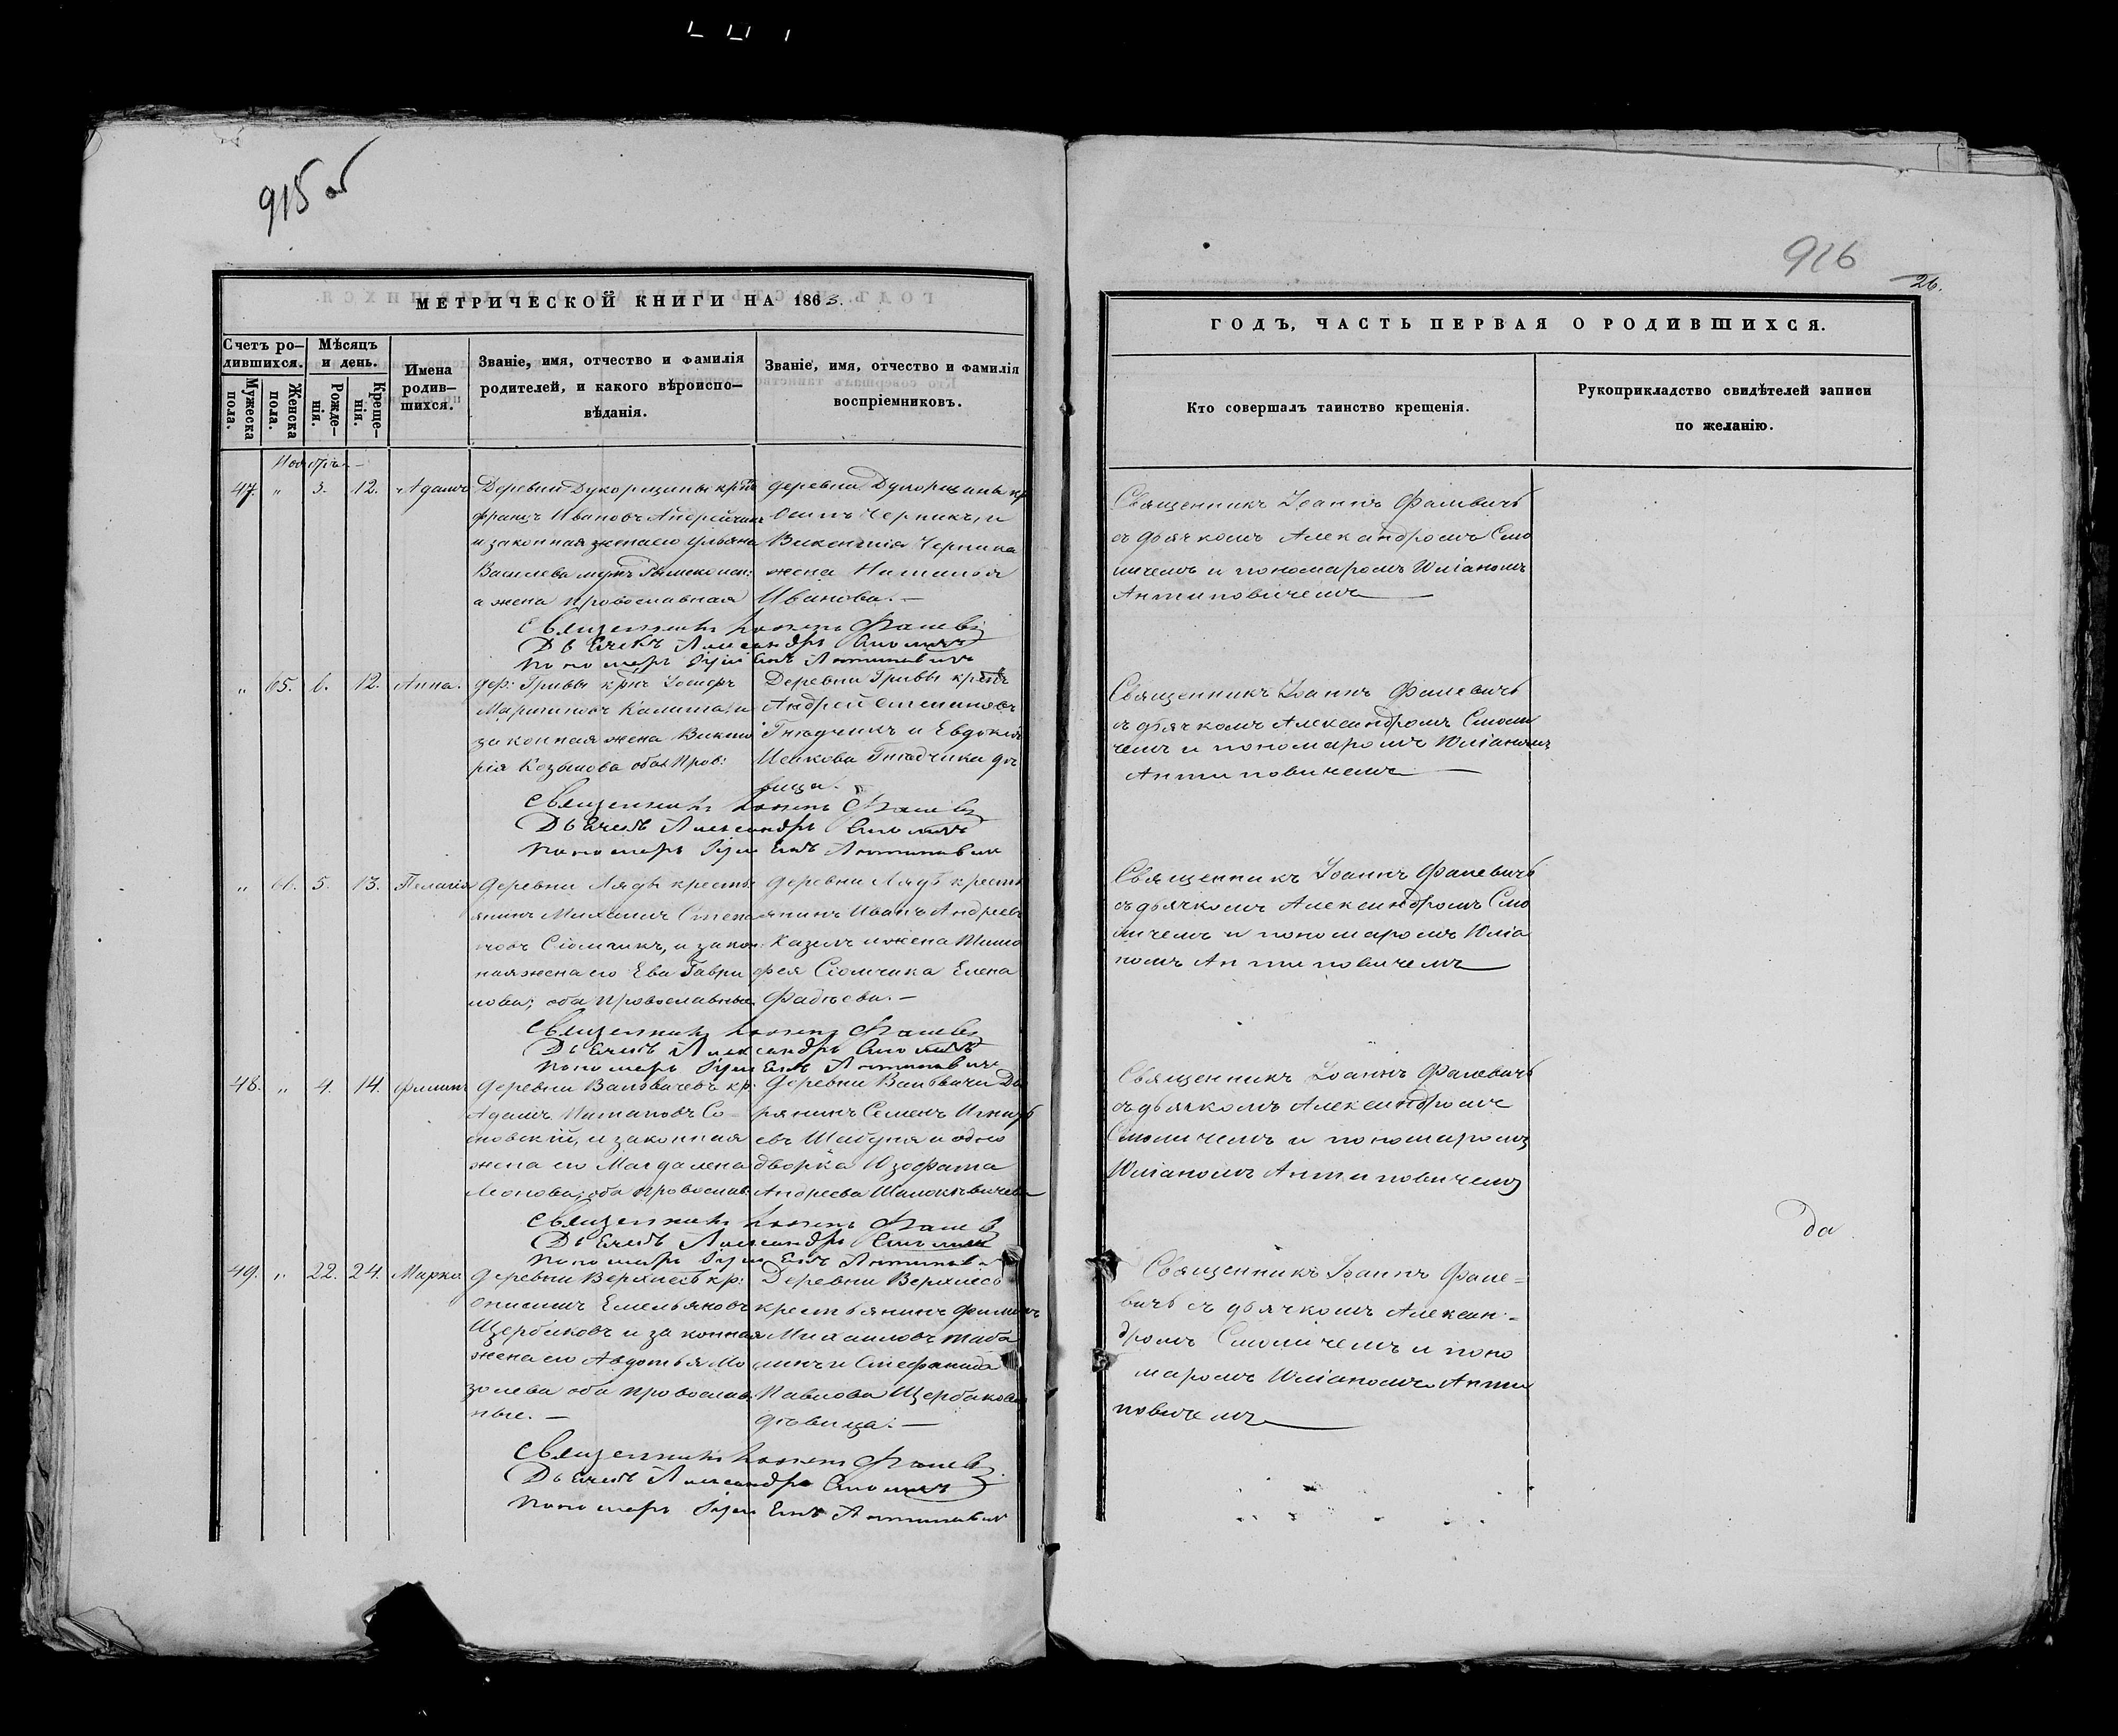 915 об
МЕТРИЧЕСКОЙ КНИГИ НА 1863.
Счетъ ро-
дившихся.
Мѣсяцъ
и день.
Мужеска
пола.
Женска
пола.
Рожде-
нія.
Креще-
нія.
Имена
родив-
шихся.
Званіе, имя, отчество и фамилія
родителей, и какого вѣроиспо-
вѣданія.
Званіе, имя, отчество и фамилія
воспріемниковъ.
47. " 3. 12. Адамъ
Деревни Дукорщины
Францъ Ивановъ Андрейчикъ
и законная жена его Ульяна
Василева мужъ
а жена православная
деревни Дукорщины кр
Осипъ Черникъ, и
Викентія Черника
жена Наталія
Иванова. —
Священникъ Іоаннъ Фалевичъ
Дьячекъ Александръ Смоличъ
Пономарь Антиповичъ
" 65. 6. 12. Анна.
дер: Гривы Іосифъ
Мартиновъ Калита, и
законная жена Викто
рія Козьмова оба Прав:
Деревни Гривы
Андрей Степановъ
и Евдокія
дѣ
вица.
Священникъ Іоаннъ Фалевичъ
Дьячекъ Александръ Смоличъ
Пономарь Антиповичъ
" 66. 5. 13. Пелагія
Деревни Ляды кресть
янинъ Михаилъ Степа
новъ Сіомчикъ, и закон:
ная жена его Ева Гаври
лова; оба православные
деревни Ляды кресть
янинъ Иванъ Андреевъ
и жена Тимо
фея Сіомчика Елена
Фадѣева. —
Священникъ Іоаннъ Фалевичъ
Дьячекъ Александръ Смоличъ
Пономарь Антиповичъ
48. " 4. 14. Филипъ
деревни кр:
Адамъ Со-
сновскій, и законная
жена его Магдалена
Леонова; оба православ.
деревни Дво
рянинъ Семенъ
и одно
дворка Юзофата
Андреева
Священникъ Іоаннъ Фалевичъ
Дьячекъ Александръ Смоличъ
Пономарь Антиповичъ
49. " 22. 24. Марко
Деревни Верхлѣсь кр:
Онисимъ Емельяновъ
Щербаковъ и законная
жена его Авдотья Мо
оба православ
ные. —
Деревни Верхлѣсь
крестьянинъ Филипъ
Михаиловъ
и Стефанида
Павлова Щербакова
дѣвица. —
Священникъ Іоаннъ Фалевичъ
Дьячекъ Александръ Смоличъ
Пономарь Антиповичъ
916
26.
ГОДЪ, ЧАСТЬ ПЕРВАЯ О РОДИВШИХСЯ.
Кто совершалъ таинство крещенія.
Рукоприкладство свидѣтелей записи
по желанію.
Священникъ Іоаннъ Фалевичъ
съ дьячкомъ Александромъ Смо
личемъ и пономаромъ Юліаномъ
Антиповичемъ —
Священникъ Іоаннъ Фалевичъ
съ дьячкомъ Александромъ Смоли
чемъ и пономаромъ Юліаномъ
Антиповичемъ —
Священникъ Іоаннъ Фалевичъ
съ дьячкомъ Александромъ Смо
личемъ и пономаромъ Юліа
номъ Антиповичемъ
Священникъ Іоаннъ Фалевичъ
съ дьячкомъ Александромъ
Смоличемъ и пономаромъ
Юліаномъ Антиповичемъ
да
Священникъ Іоаннъ Фале-
вичъ съ дьячкомъ Алексан-
дромъ Смоличемъ и поно
маромъ Юліаномъ Анти
повичемъ